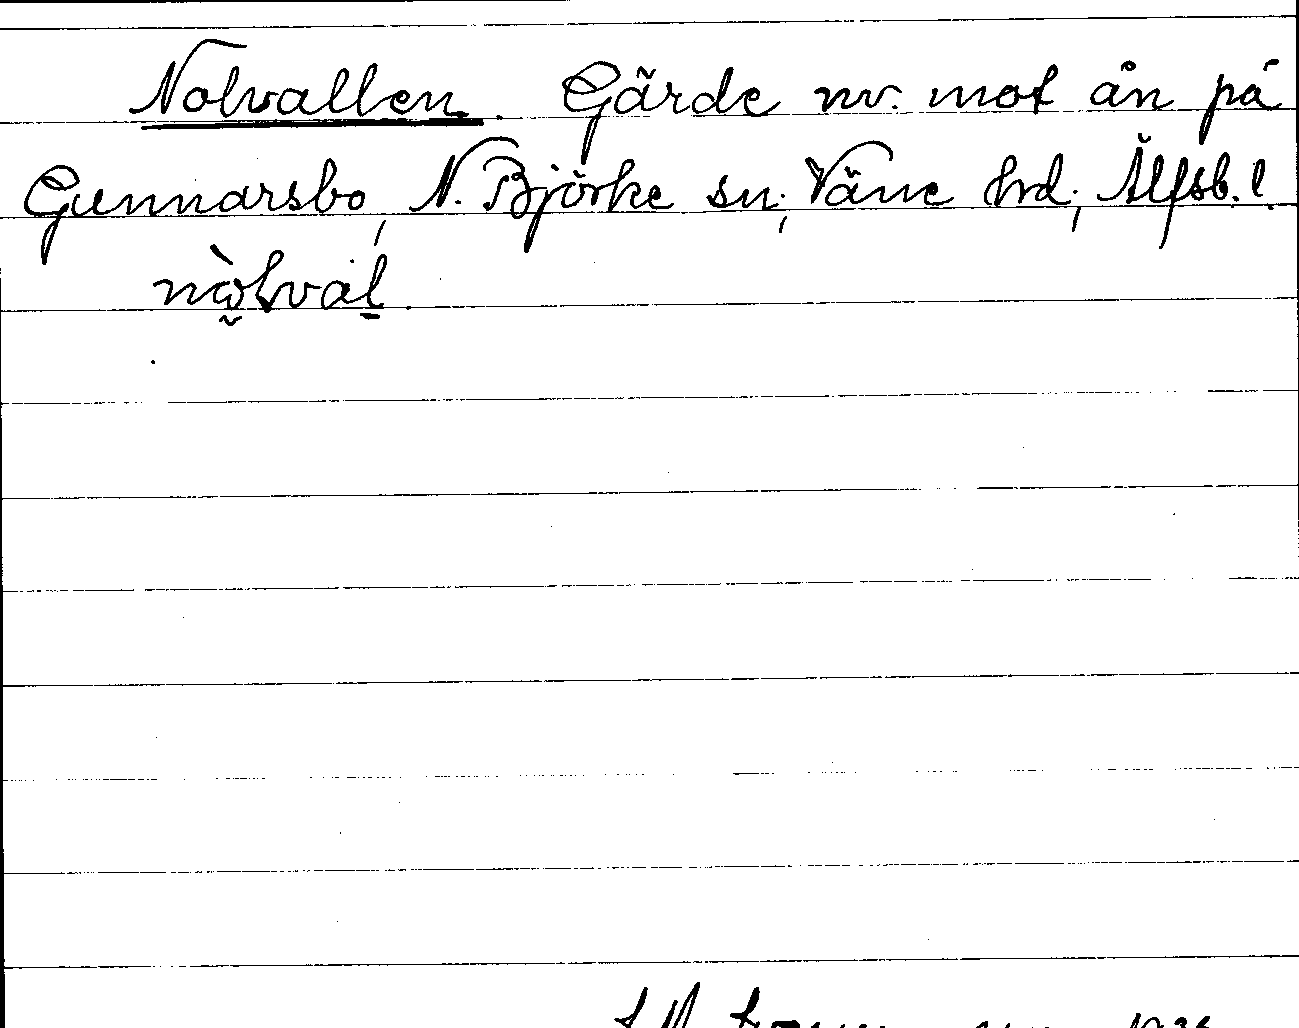 Nolvallen. Gärde nv. mot ån på
Gunnarsbo, N. Björke sn; Väne hd; Älfsb. l.
nò̰lval̠.